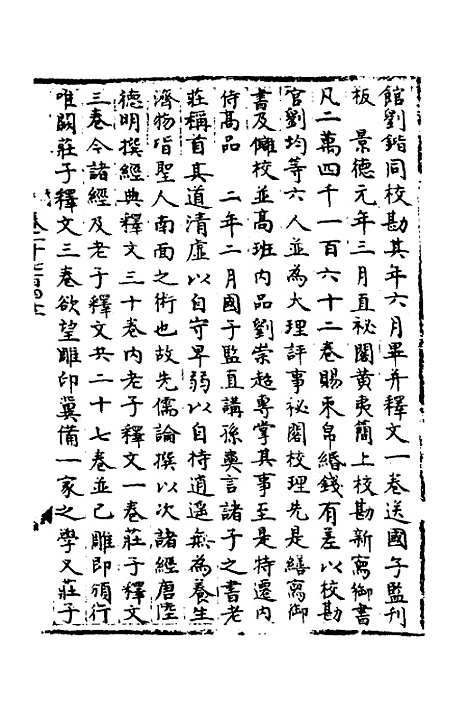 館劉鍇同校勘其年六月畢并釋文一卷送國子監刊
板　景德元年三月直祕閣黃夷簡上校勘新寫御書
凡二萬四千一百六十二卷賜束帛緡錢有差以校勘
官劉均等六人並為大理評事祕閣校理先是繕寫御
書及讎校並高班內品劉崇超專掌其事至是特遷內
侍高品　二年二月國子監直講孫奭言諸子之書老
莊稱首其道清虛以自守卑弱以自持逍遙無為養生
濟物皆聖人南面之術也故先儒論撰以次諸經唐陸
德明撰經典釋文三十卷內老子釋文一卷莊子釋文
三卷今諸經及老子釋文共二十七卷並已雕即頒行
唯闕莊子釋文三卷欲望雕印冀備一家之學又莊子